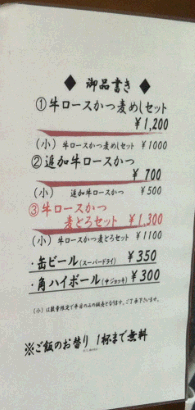 ◆ 御品書き ◆
①牛ロースかつ麦めしセット
¥1,200
(小) 牛ロースかつ麦めしセット ¥1000
②追加牛ロースかつ
¥ 700
(小) 追加牛ロースかつ ¥500
③牛ロースかつ
麦とろセット ¥1,300
(小) 牛ロースかつ麦とろセット ¥1100
・缶ビール(スーパードライ) ¥350
・角ハイボール(サジョッキ) ¥300
※ご飯のお替り 1杯まで無料